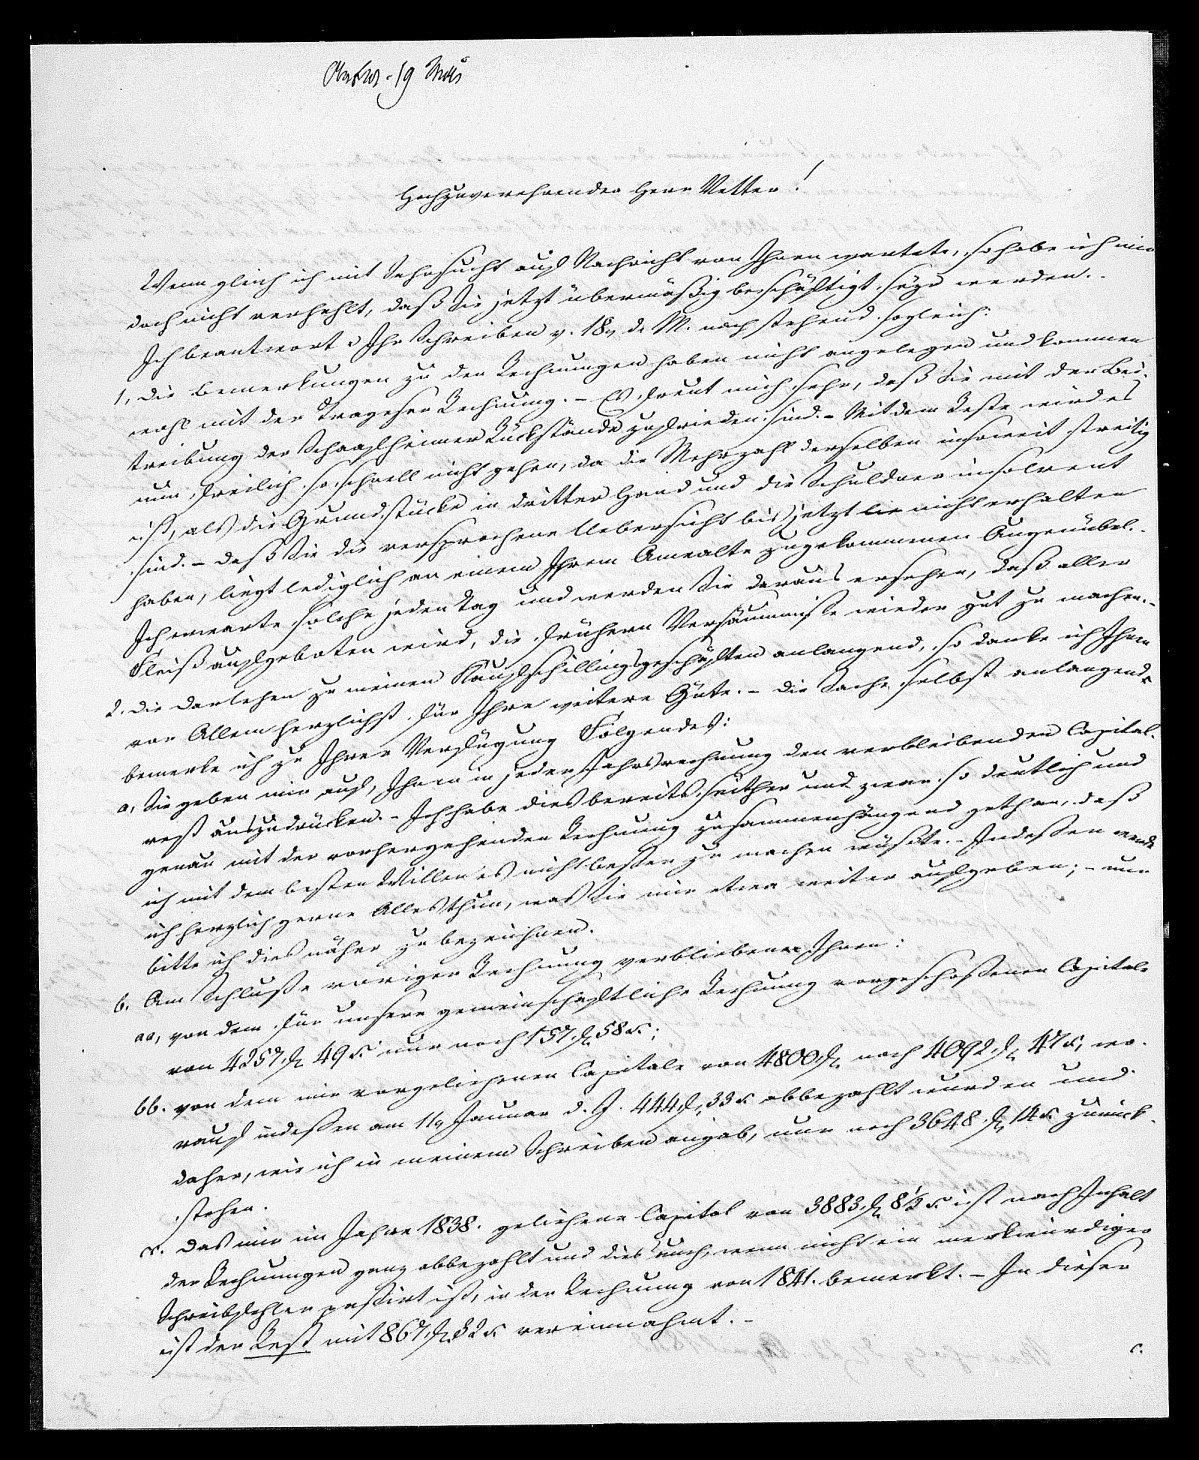 Hochzuverehrender Herr Vetter!
Wenn gleich ich mit Sehnsucht auf Nachricht von Ihnen wartete, so habe ich mir
doch nicht verhehlt, daß Sie jetzt übermäßig beschäftigt seyn werden.
Ich beantworte Ihr Schreiben v. 18. d. M. nachstehend sogleich:
1, die Bemerkungen zu den Rechnungen haben nicht angelegen und kommen
wohl mit der Rechnung. – Es freut mich sehr, daß Sie mit der Bei-
treibung der Schaafheimer Rückstände zufrieden sind. – Mit dem Reste wird es
nun freilich so schnell nicht gehen, da die Mehrzahl derselben insoweit streitig
ist, als die Grundstücke in dritter Hand und die Schuldner insolvent
sind. – Daß Sie die versprochene Uebersicht bis jetzt nicht erhalten
haben, liegt lediglich an einem Ihrem Anwalte zugekommenen Augenübel.
Ich erwarte solche jeden Tag und werden Sie daraus ersehen, daß aller
Fleiß aufgeboten wird, die frühern Versäumnisse wieder gut zu machen. –
2. Die Darlehen zu meinen Kaufschillingsgeschäften anlangend, so danke ich Ihnen
vor Allem herzlichst für Ihre weitere Güte. – Die Sache selbst anlangend,
bemerke ich zu Ihrer Verfügung Folgendes:
a, Sie geben mir auf, Ihnen in jeder Jahresrechnung den verbleibenden Capital-
rest auszudrücken. – Ich habe dies bereits seither und zwar so deutlich und
genau mit der vorhergehenden Rechnung zusammenhängend gethan, daß
ich mit dem besten Willen es nicht besser zu machen wüßte. – Indessen werde
ich herzlich gerne Alles thun, was Sie mir etwa weiter aufgeben; – nur
bitte ich dies näher zu bezeichnen.
b. Am Schlusse voriger Rechnung verblieben Ihnen:
aa, von dem für unsere gemeinschaftliche Rechnung vorgeschossenen Capitale
von 4257 fl 49 x nur noch 157 fl 58 x;
bb. von dem mir vorgeliehenen Capitale von 4800 fl noch 4092 fl 47 x, wo-
rauf indessen am 11 Januar d. J. 444 fl 33 x abbezahlt wurden und
daher, wie ich in meinem Schreiben angab, nur noch 3648 fl 14 x zurück-
stehen.
c. Das mir im Jahre 1838. geliehene Capital von 3883 fl 8½ x ist nach Inhalt
der Rechnungen ganz abbezahlt und dies auch, wenn nicht ein merkwürdiger
Schreibfehler passirt ist, in der Rechnung von 1841. bemerkt. – In dieser
ist der Rest mit 867 fl 32 x vereinnahmt. –
c.